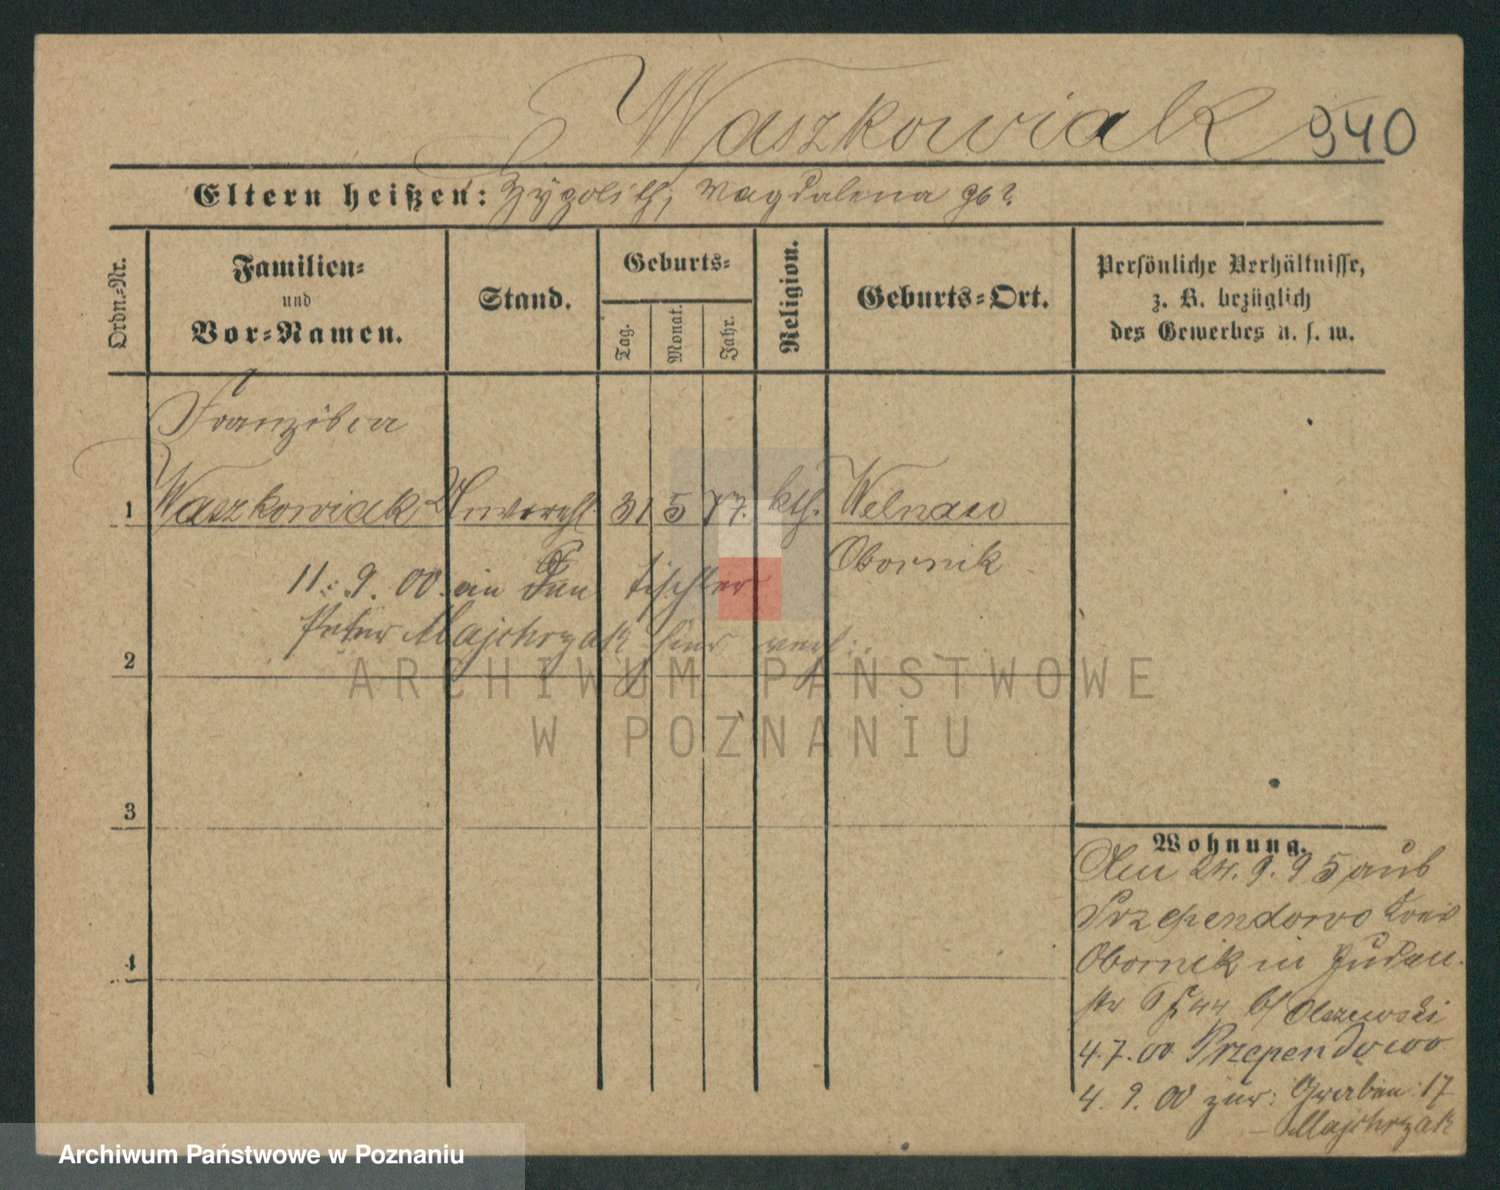 Waszkowiak 940
Eltern heißen: Magdalena
Ordn.-Nr.
Familien-
und
Vor-Namen.
Stand.
Geburts-
Tag.
Monat.
Jahr.
Religion.
Geburts-Ort.
Persönliche Verhältnisse,
z. B. bezüglich
des Gewerbes u. s. w.
Franziska
1 Waszkowiak Unverehl. 31 5 77. kth. Welnau
Obornik
11. 9. 00 an den Tischler
Peter Majchrzak hier verh.
2
ARCHIWUM PAŃSTWOWE
W POZNANIU
3
4
Wohnung.
Am 24. 9. 95 aus
Przependowo Kreis
Obornik in Juden-
str b/ Olszewski
4. 7. 00 Przependowo
4. 9. 00 zur: Graben 17
Majchrzak
Archiwum Państwowe w Poznaniu